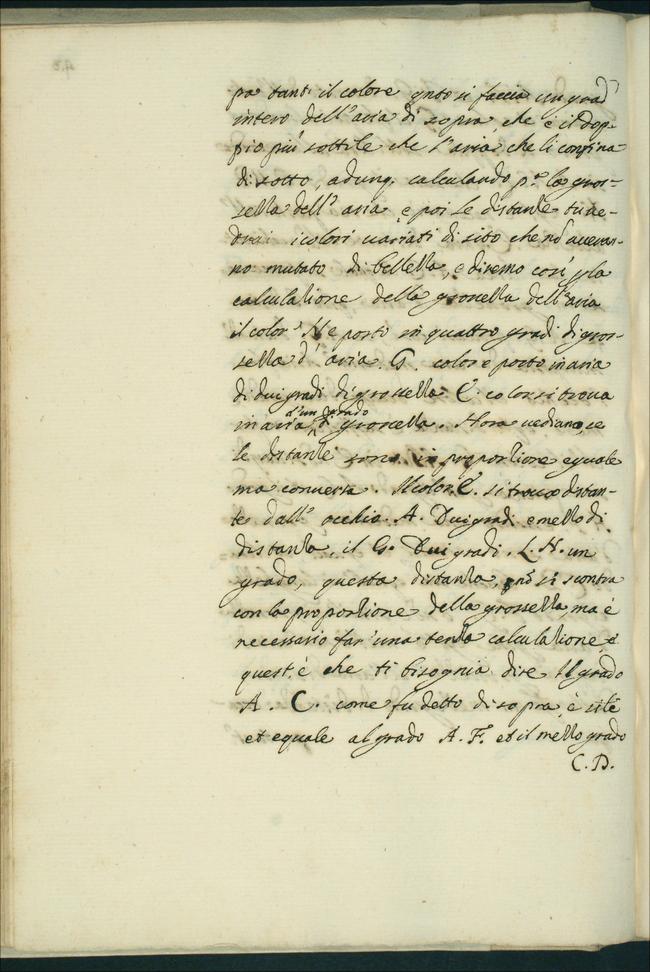 pra tanti il colore qnto si faccia un grad
intero dell'aria di sopra, che è il dop-
pio più sottile che l'aria, che li confina
di sotto, adunq. calculando p.ª la gros-
sezza dell'aria, e poi le distanze tu ve-
drai i colori variati di sito che nō averan-
no mutato di bellezza, e diremo così p la
calculazione della grossezza dell'aria
il color' N e posto in quattro gradi di gros-
sezza d'aria. G. colore posto in aria
di dui gradi di grossezza E. color si trova
in aria d'un grado di grossezza. Hora vediamo, se
le distanze sono in proportione equale
ma conversa. Il color. E. si trova distan-
te dall' occhio. A. Dui gradi e mezzo di
distanza, il G. Dui gradi. L. N. un
grado, questa distanza nō si scontra
con la proportione della grossezza, ma è
necessario far' una terza calculazione, e
quest' è che ti bisognia dire Il grado
A. C. come fu detto di sopra, è sile
et equale al grado A. F. et il mezzo grado
C. D.